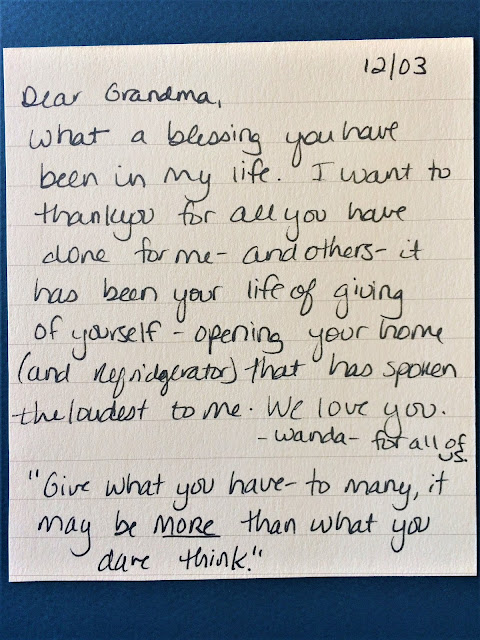 12/03
Dear Grandma,
What a blessing you have
been in my life. I want to
thankyou for all you have
done for me - and others - it
has been your life of giving
of yourself - opening your home
(and Refridgerator) that has spoken
the loudest to me. We love you.
- Wanda - for all of
us.
"Give what you have - to many, it
may be MORE than what you
dare think."